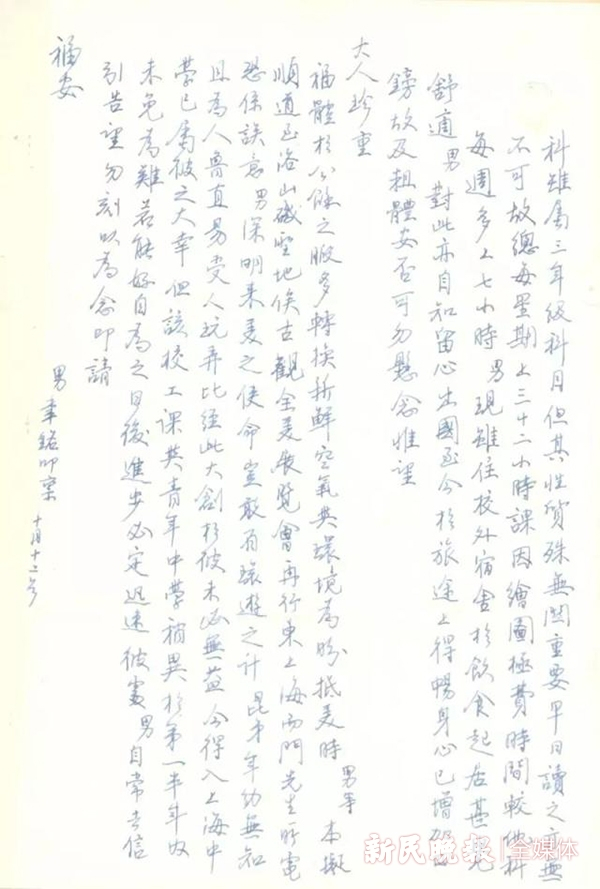 科雖屬三年級科目但其性質殊無關重要早日讀之亦無
不可故總每星期上三十二小時課因繪圖極費時間較他科
每週多上七小時男現雖住校外宿舍於飲食起居甚見
舒適男對此亦自知留心出國至今於旅途上得暢身心已增
鎊故及粗體安否可勿懸念惟望
大人珍重
福體於公餘之暇多轉換新鮮空氣與環境為盼抵美時男等本擬
順道至洛山磯聖地佚古觀全美展覽會再行東上海西門先生所電
恐係誤意男深明來美之使命豈敢有環遊之計昆弟年幼無知
且為人魯直易受人玩弄此經此大創於彼未必無益今得入上海中
學已屬彼之大幸但該校工課與青年中學稍異於第一半年內
未免為難若能好自為之日後進步必定迅速彼處男自常去信
引告望勿刻以為念即請
福安
男 叩稟 十月十二
新民晚报 全媒体